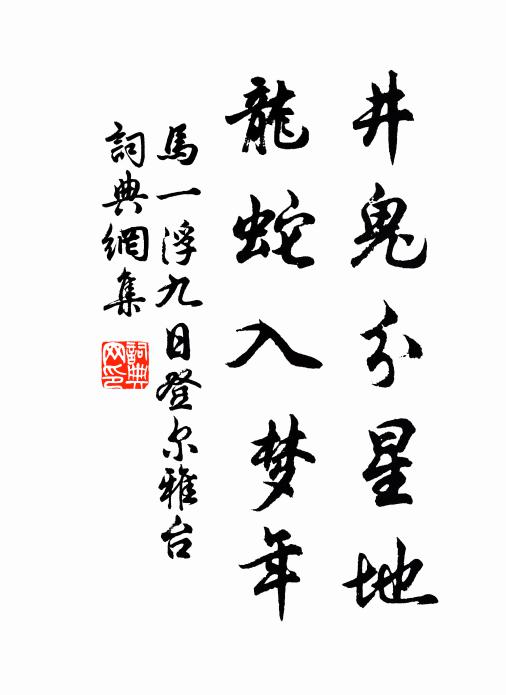 井鬼分星地
龍蛇入梦年
馬一浮九日登尔雅台
詞典網集
詞典網印